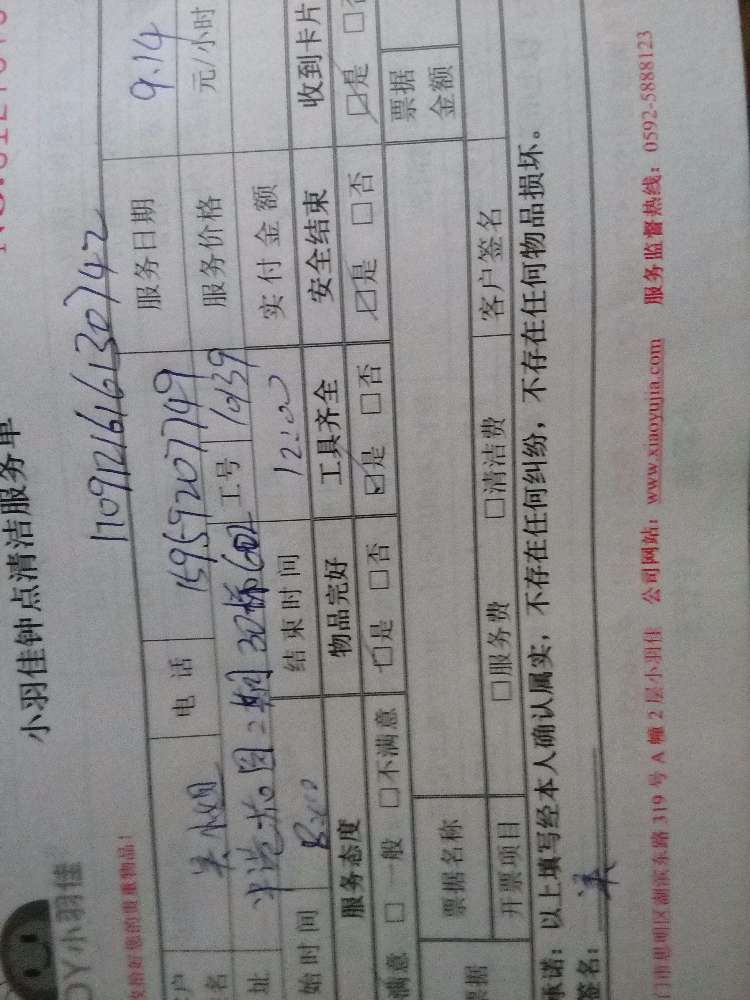 小羽佳钟点清洁服务单
1709121616130742
OY小羽佳
收拾好您的贵重物品！
户名 吴小姐 电话 15959207749 服务日期 9.14
址 二期 30梯602 工号 1039 服务价格 元/小时
始时间 8:00 结束时间 12:00 实付金额
服务态度 物品完好 工具齐全 安全结束 收到卡片
满意 □一般 □不满意 ☑是 □否 ☑是 □否 ☑是 □否 ☑是 □
票据 票据名称 票据金额
开票项目 □服务费 □清洁费 客户签名
承诺：以上填写经本人确认属实，不存在任何纠纷，不存在任何物品损坏。
签名：吴
门市思明区湖滨东路 319 号 A 幢 2 层小羽佳 公司网站：www.xiaoyujia.com 服务监督热线：0592-5888123